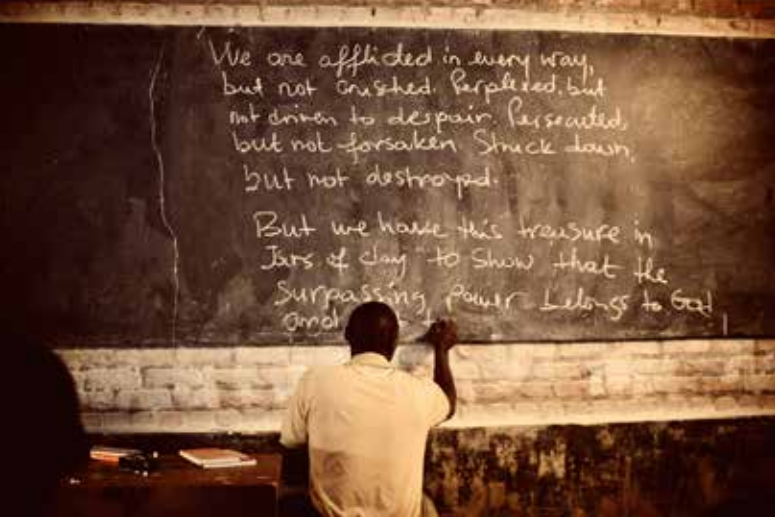 We are afflicted in every way,
but not crushed. Perplexed, but
not driven to despair. Persecuted,
but not forsaken. Struck down,
but not destroyed.
But we have this treasure in
Jars of clay to show that the
Surpassing power belongs to God
and